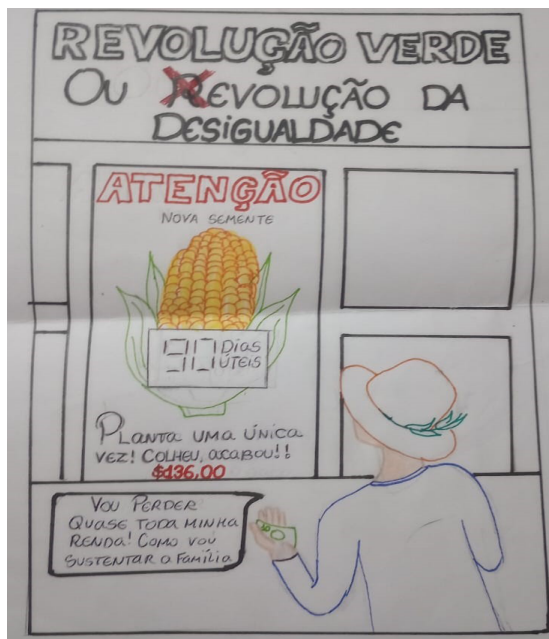 REVOLUÇÃO VERDE
OU REVOLUÇÃO DA
DESIGUALDADE
ATENÇÃO
NOVA SEMENTE
90 DIAS
ÚTEIS
PLANTA UMA ÚNICA
VEZ! COLHEU, ACABOU!!
$136,00
VOU PERDER
QUASE TODA MINHA
RENDA! COMO VOU
SUSTENTAR A FAMÍLIA